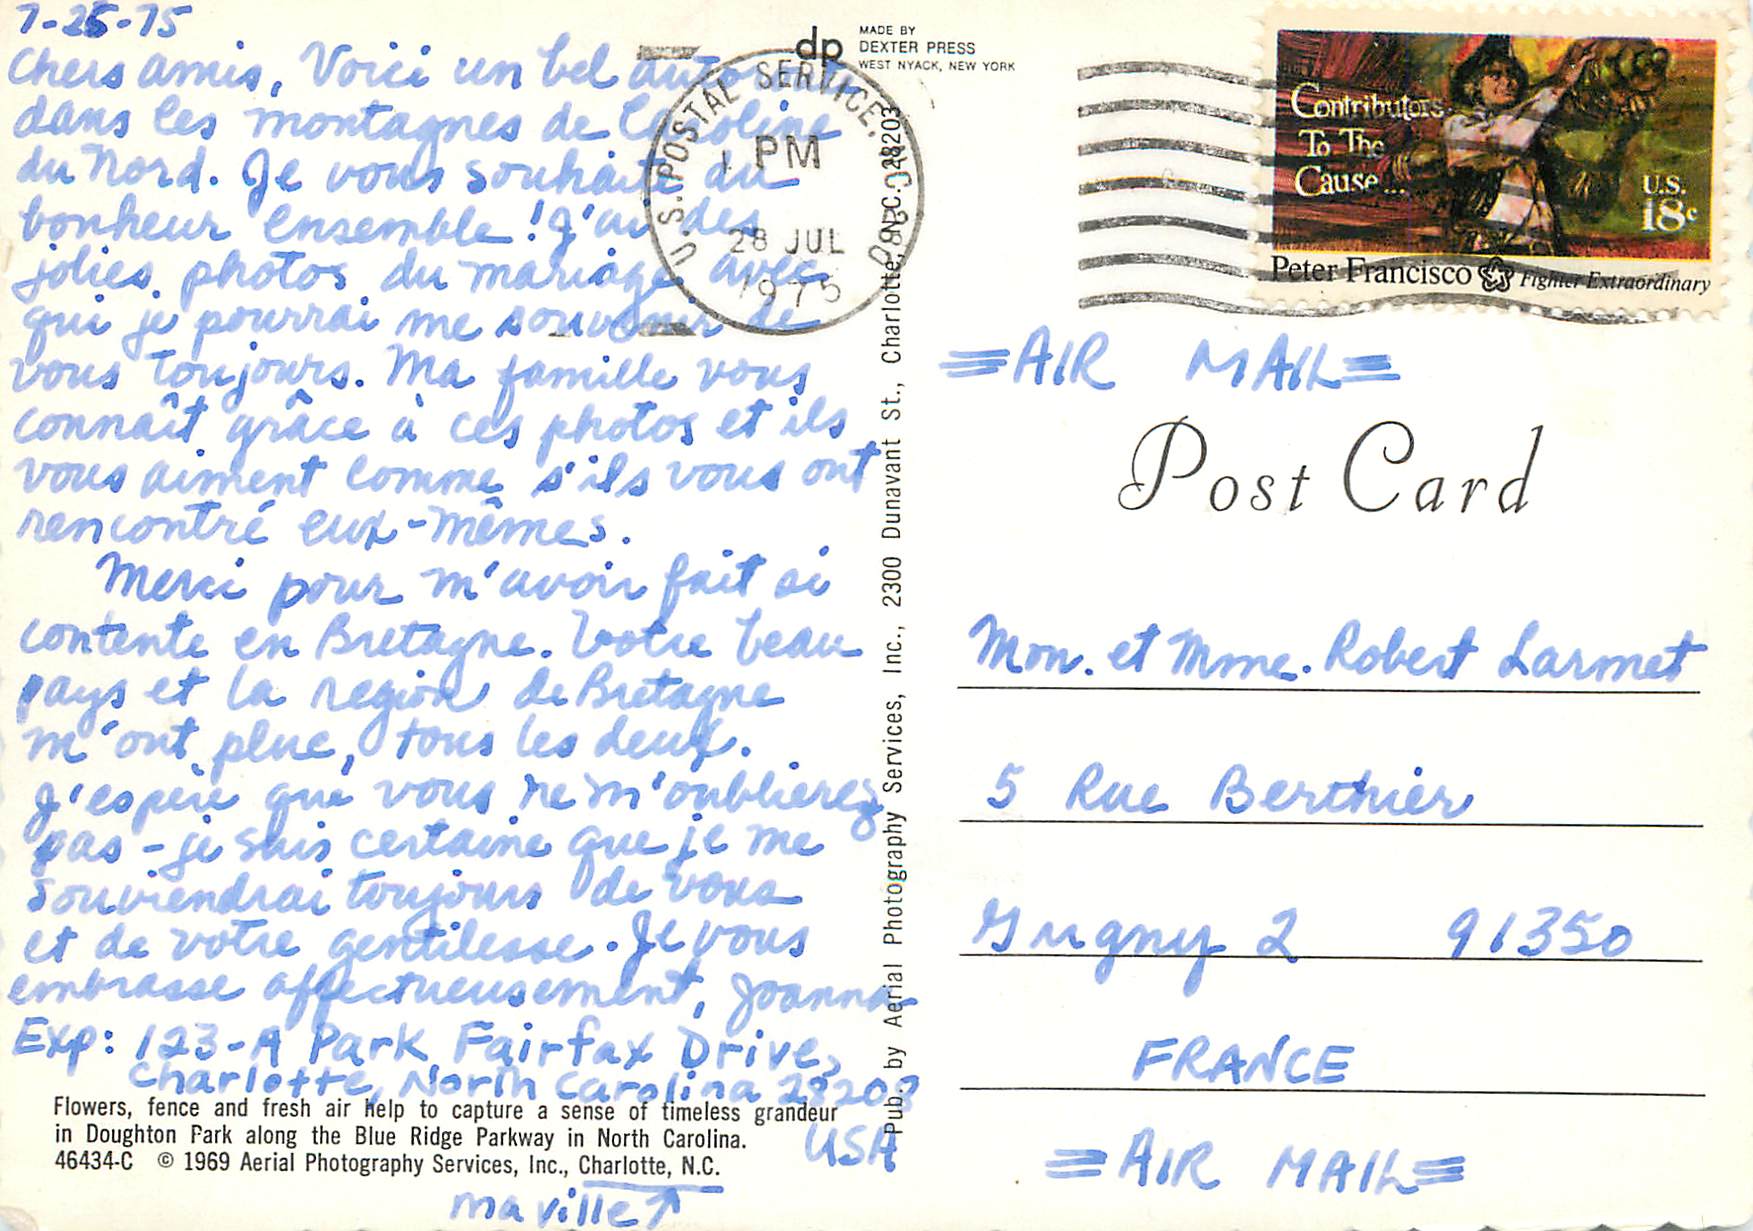 7-25-75
Chers amis, Voici un bel
dans les montagnes de Caroline
du Nord. Je vous souhaite du
bonheur ensemble! J'ai des
jolies photos du mariage avec
qui je pourrai me souvenir de
vous toujours. Ma famille vous
connaît grâce à ces photos et ils
vous aiment comme s'ils vous ont
rencontré eux-mêmes.
Merci pour m'avoir fait si
contente en Bretagne. Votre beau
pays et la region de Bretagne
m'ont plue, tous les deux.
J'espère que vous ne m'oublierez
pas - je suis certaine que je me
souviendrai toujours de vous
et de votre gentilesse. Je vous
embrasse affectueusement, Joanna
Exp: 123-A Park Fairfax Drive,
Charlotte, North Carolina 28208
USA
Flowers, fence and fresh air help to capture a sense of timeless grandeur
in Doughton Park along the Blue Ridge Parkway in North Carolina.
46434-C © 1969 Aerial Photography Services, Inc., Charlotte, N.C.
ma ville
dp
MADE BY
DEXTER PRESS
WEST NYACK, NEW YORK
U.S. POSTAL SERVICE,
PM
28 JUL
1975
Pub. by Aerial Photography Services, Inc., 2300 Dunavant St., Charlotte, N.C. 28203
Contributors
To The
Cause...
U.S.
18c
Peter Francisco Fighter Extraordinary
AIR MAIL
Post Card
Mon. et Mme. Robert Larmet
5 Rue Berthier
Grigny 2 91350
FRANCE
AIR MAIL